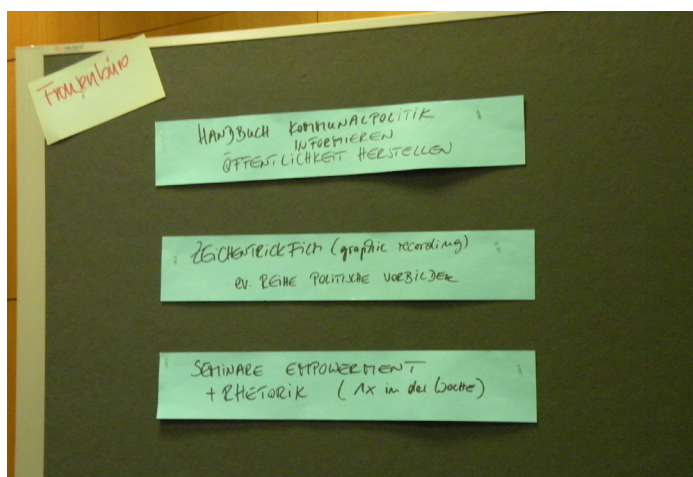 Frauenbüro
HANDBUCH KOMMUNALPOLITIK
INFORMIEREN
ÖFFENTLICHKEIT HERSTELLEN
ZEICHENTRICKFILM (graphic recording)
ev. REIHE POLITISCHE VORBILDER
SEMINARE EMPOWERMENT
+ RHETORIK (1x in der Woche)